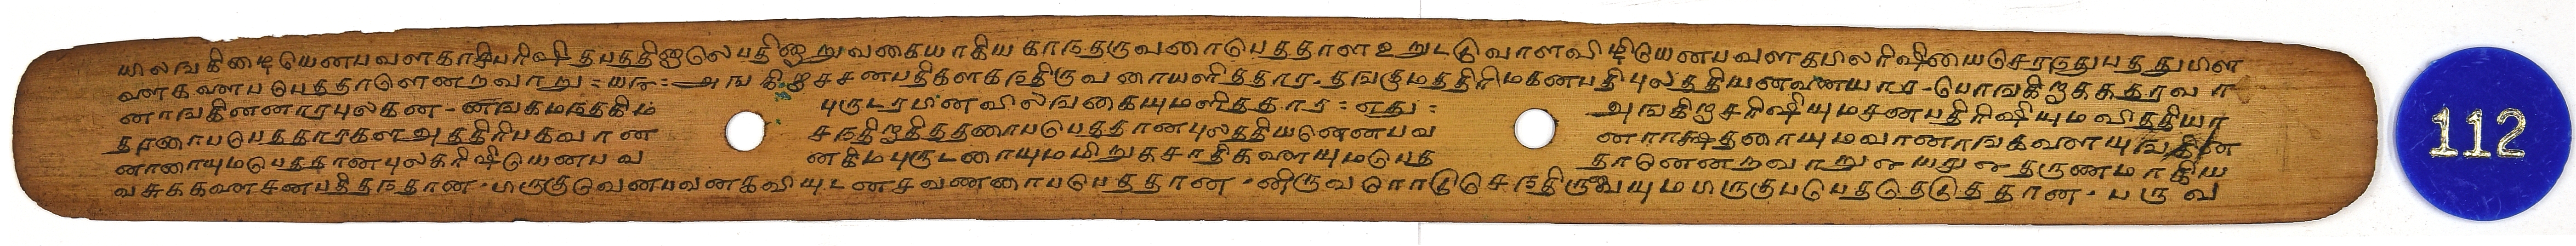 யிலஙகிடையெனபவளகாசிபரிஷி தபததினாலெ பதினறுவகையாகிய காநதருவணாபெததாள உறுடடுவாளவிடியெனபவளகபிலரிஷியைசெரநதுபததுபிள
ளைகளைபபெததாளெனறவாறு = யந = அஙகிறசசனபதிகளகநதிருவ னாயளிததார தஙகுமததிரிமகனபதி புலததியனவணையார பொஙகிறககதரவா
னாஙகினனாரபுலகன - னஙகமநதகிம புருடரமினவிலஙகையுமளிததார = எது = அஙகிறசரிஷியுமசனபதி ரிஷியும விததியா
தரணாபபெததாரகளஅததிரிபகவான சநதிறாதிததனாபபெததானபுலததியனெனபவ னராகஷதனாயுமவானாஙகளையுஙகின
னானாயுமபெததானபுலகரிஷியெனபவ னகிமபுருடனாயுமமிறுகசாதிகளையுமபெத தானெனறவாறு ௬ யறு ௬ தருணமாகிய
வசுககளைசனபதிதநதான - பிருகுவெனபவனகவியுடனசவணனாபபெததான - னிருவரொடுசெநதிருவையுமபிருகுபபெததெடுததான - பருவ
112